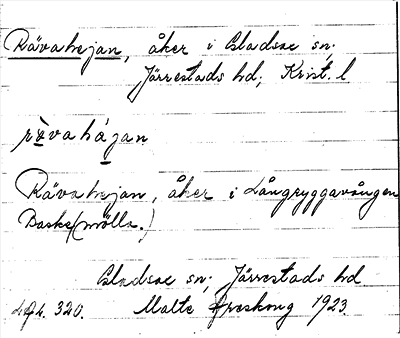 Rävahejan, åker i Gladsax sn;
Järrestads hd; Krist. l
rävahájan
Rävahejan, åker i Långryggavången
Baske(mölla.)
Gladsax sn; Järrestads hd
320. Malte Areskoug 1923.